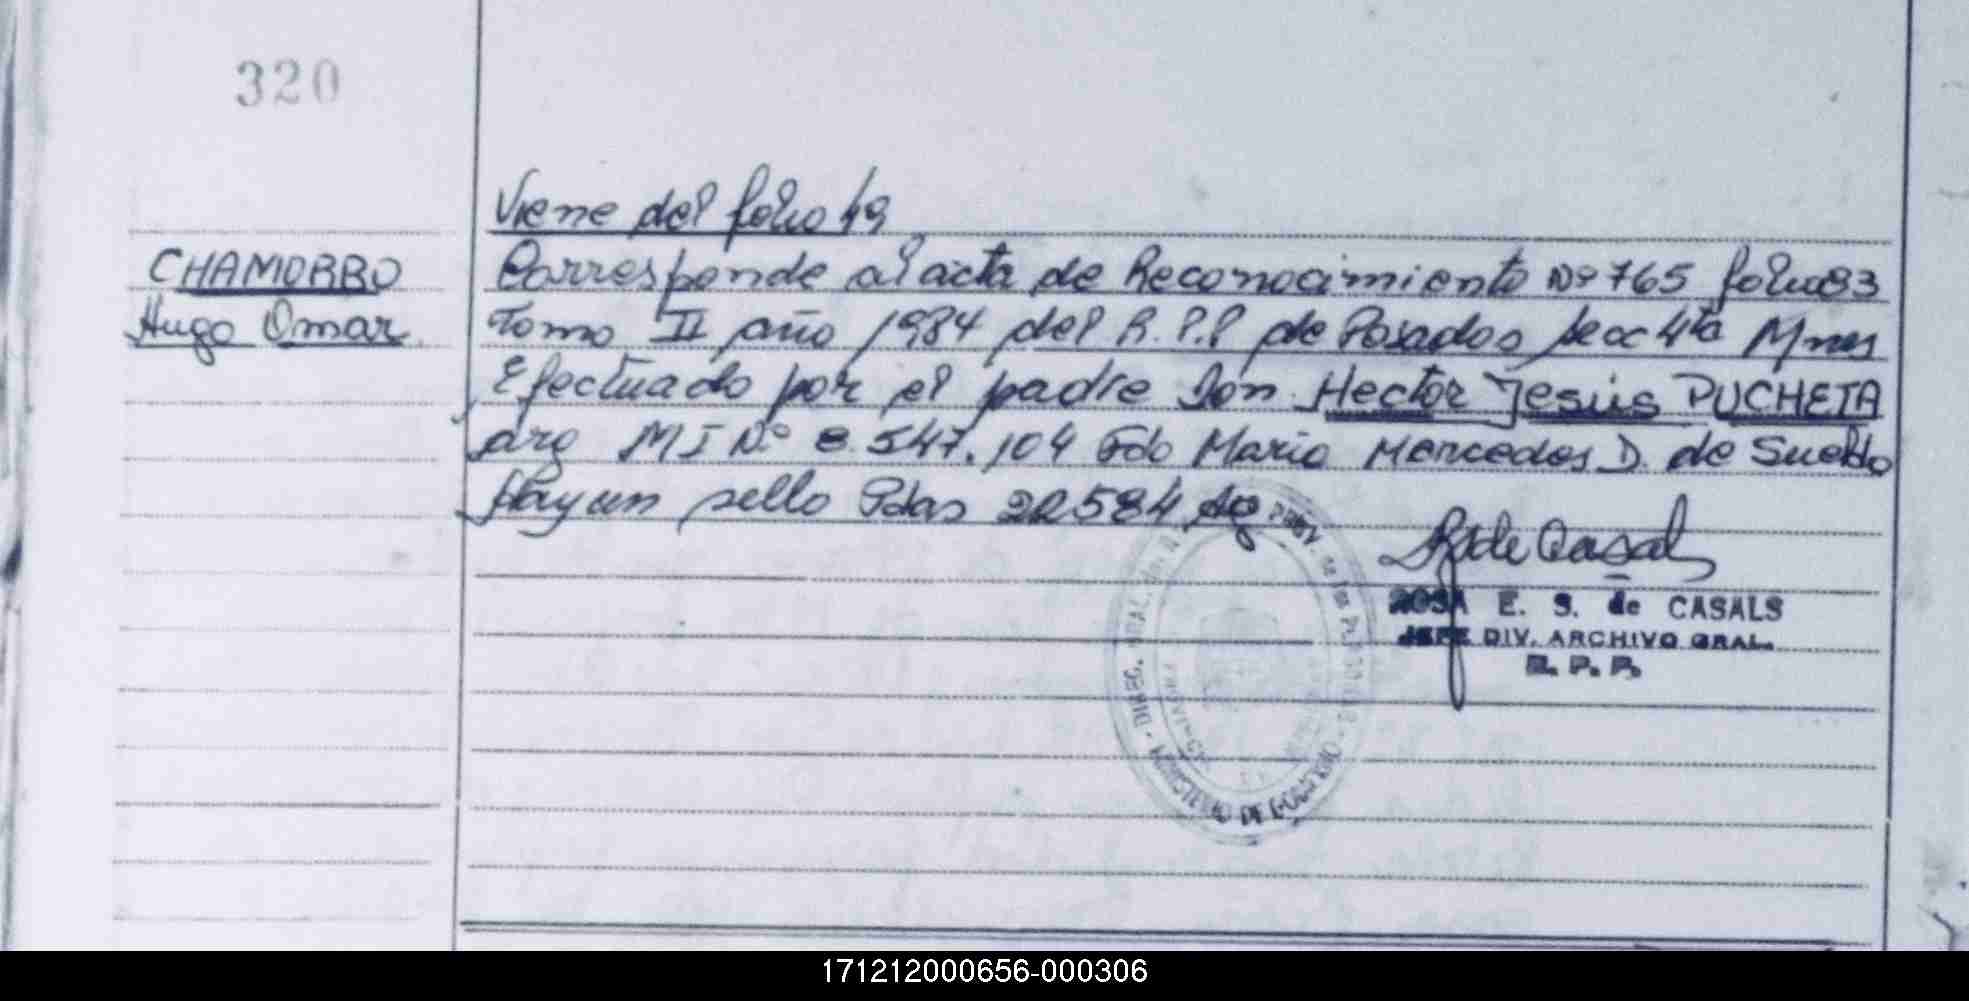 320
Viene del folio 49
CHAMORRO
Hugo Omar
Corresponde al acta de Reconocimiento Nº 765 folio 83
Tomo II año 1984 del R.P.P de Posadas Secc 4ta Mnes
Efectuado por el padre Don Hector Jesús PUCHETA
arg MI Nº 8.547.104 Fdo Maria Mercedes D. de Sueldo
Hay un sello Pdas 22584
R de Casals
ROSA E. S. de CASALS
JEFE DIV. ARCHIVO GRAL.
R. P. P.
171212000656-000306